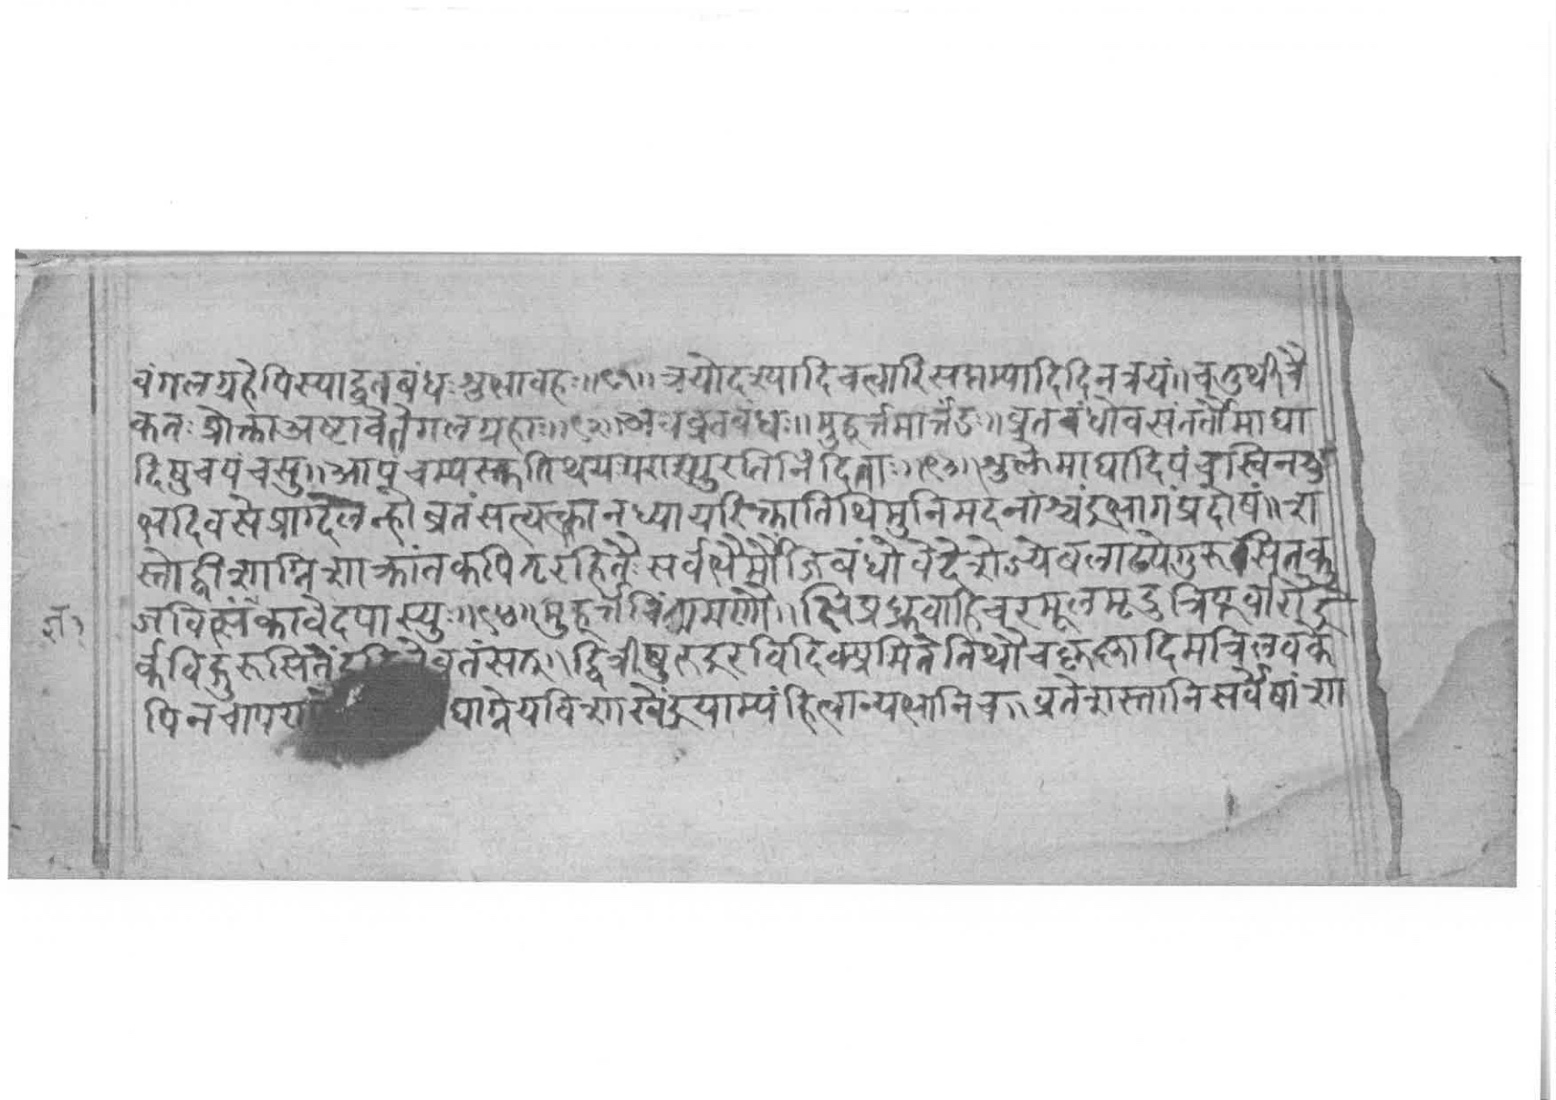 वंगलग्रहेपिस्याद्व्रतबंधःशुभावहः॥९१॥त्रयोदश्यादिचत्वारिसप्तम्यादिदिनत्रयं॥चतुर्थीचै
कतःप्रोक्ताअष्टावेतेगलग्रहाः॥९२॥अथव्रतबंधः॥मुहूर्त्तमार्त्तंडः॥व्रतबंधोवसंतर्तौमाघा
दिषुचपंचसु॥आपंचम्यस्क्ततिथयःपरास्स्युरतिनिंदिताः॥९३॥शुक्लेमाघादिपंचस्विनशु
भदिवसेप्राग्दलेन्हौव्रतंसत्त्यक्त्वानध्यायरिक्तातिथिमुनिमदनांश्चंद्रभागंप्रदोषं॥शा
स्तोर्द्वीशाग्निशाक्रांतकपितृरहितैःसर्वभैर्मौंजिबंधोवेदेशेज्येबलाढ्येगुरुसितकु
जवित्सुक्रावेदपास्युः॥९४॥मुहूर्त्तचिंतामणौ॥क्षिप्रध्रुवाहिचरमूलमृदुत्रिपूर्वारौद्रे
र्कविद्गुरुसितेंदुदिनेव्रतंसत्॥द्वित्रीषुरुद्ररविदिक्प्रमितेतिथौचकृष्णादिमत्रिलवके
पिनचापरा घाग्नेयविशाखेंद्रयाम्यंहित्वान्यभानिच॥व्रतेशस्तानिसर्वेषांशा